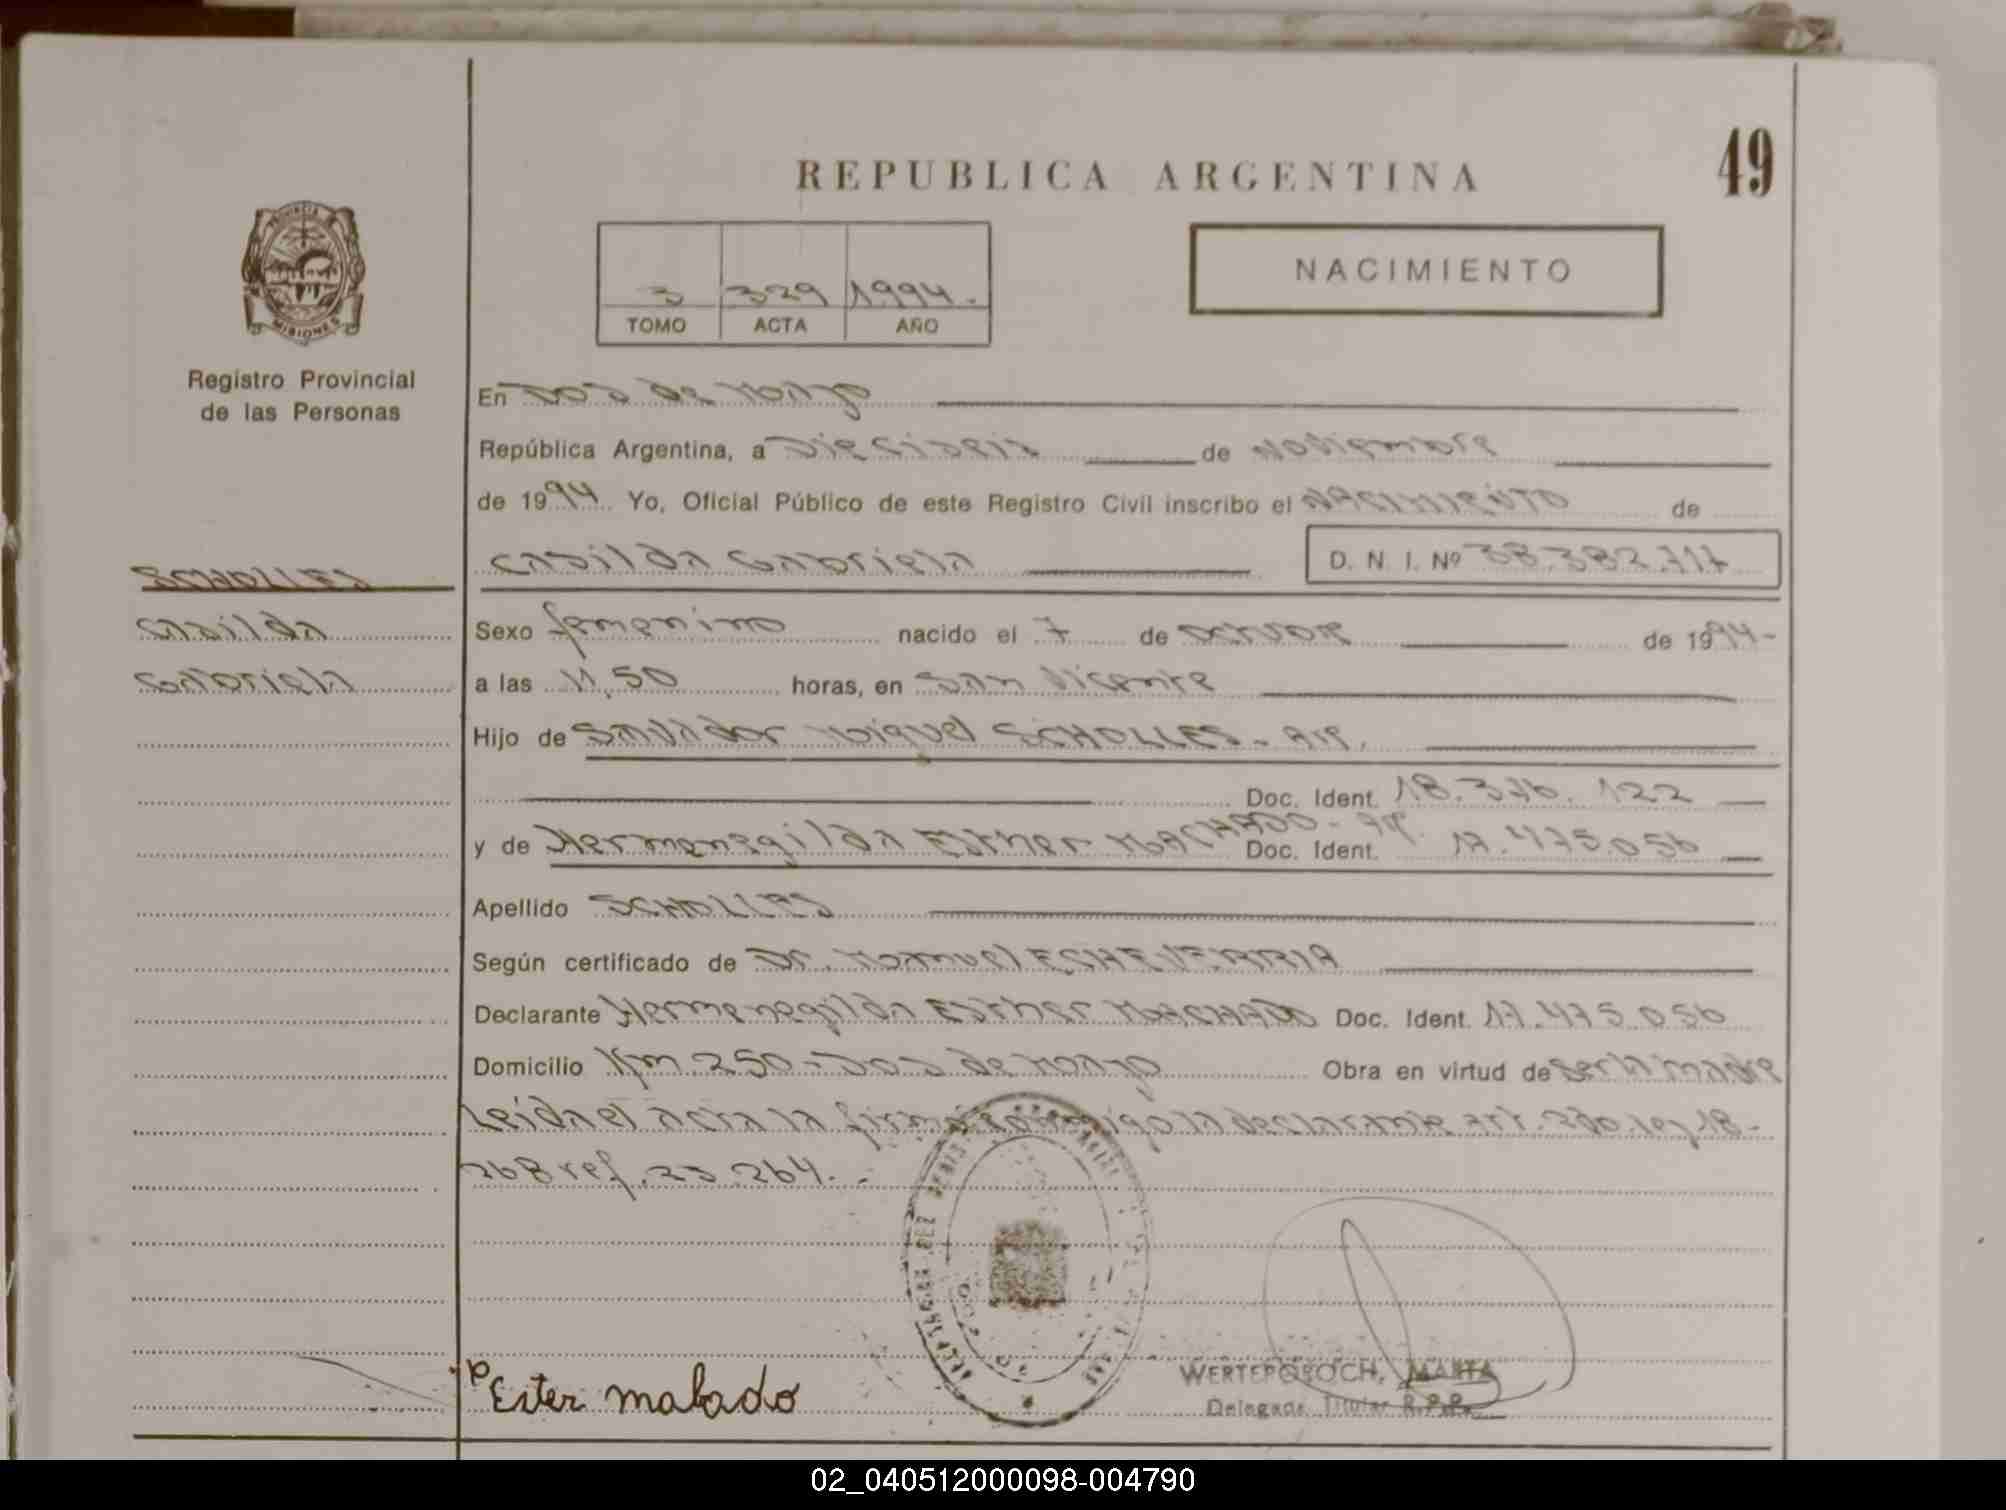 49
REPUBLICA ARGENTINA
PROVINCIA DE
MISIONES
Registro Provincial
de las Personas
3 329 1994.
TOMO ACTA AÑO
NACIMIENTO
En Dos de Mayo
República Argentina, a Dieciseis de Noviembre
de 1994. Yo, Oficial Público de este Registro Civil inscribo el NACIMIENTO de
Casilda Gabriela D. N. I. Nº 38.382.717
SCHOLLES
Casilda
Gabriela
Sexo femenino nacido el 7 de octubre de 1994-
a las 11,50 horas, en San Vicente
Hijo de Salvador Miguel SCHOLLES - Arg.
Doc. Ident. 18.376.122
y de Hermenegilda Esther MACHADO - Arg. Doc. Ident. 17.475.056
Apellido SCHOLLES
Según certificado de Dr. Manuel ECHEVERRIA
Declarante Hermenegilda Esther MACHADO Doc. Ident. 17.475.056
Domicilio Km 250 - Dos de Mayo Obra en virtud de ser la madre
Leida el acta la firma conmigo la declarante art. 2do. ley 18-
268 ref. 23.264. -
Ester mabado
WERTEPOROCH, MARTA
Delegada Titular R.P.P.
02_040512000098-004790